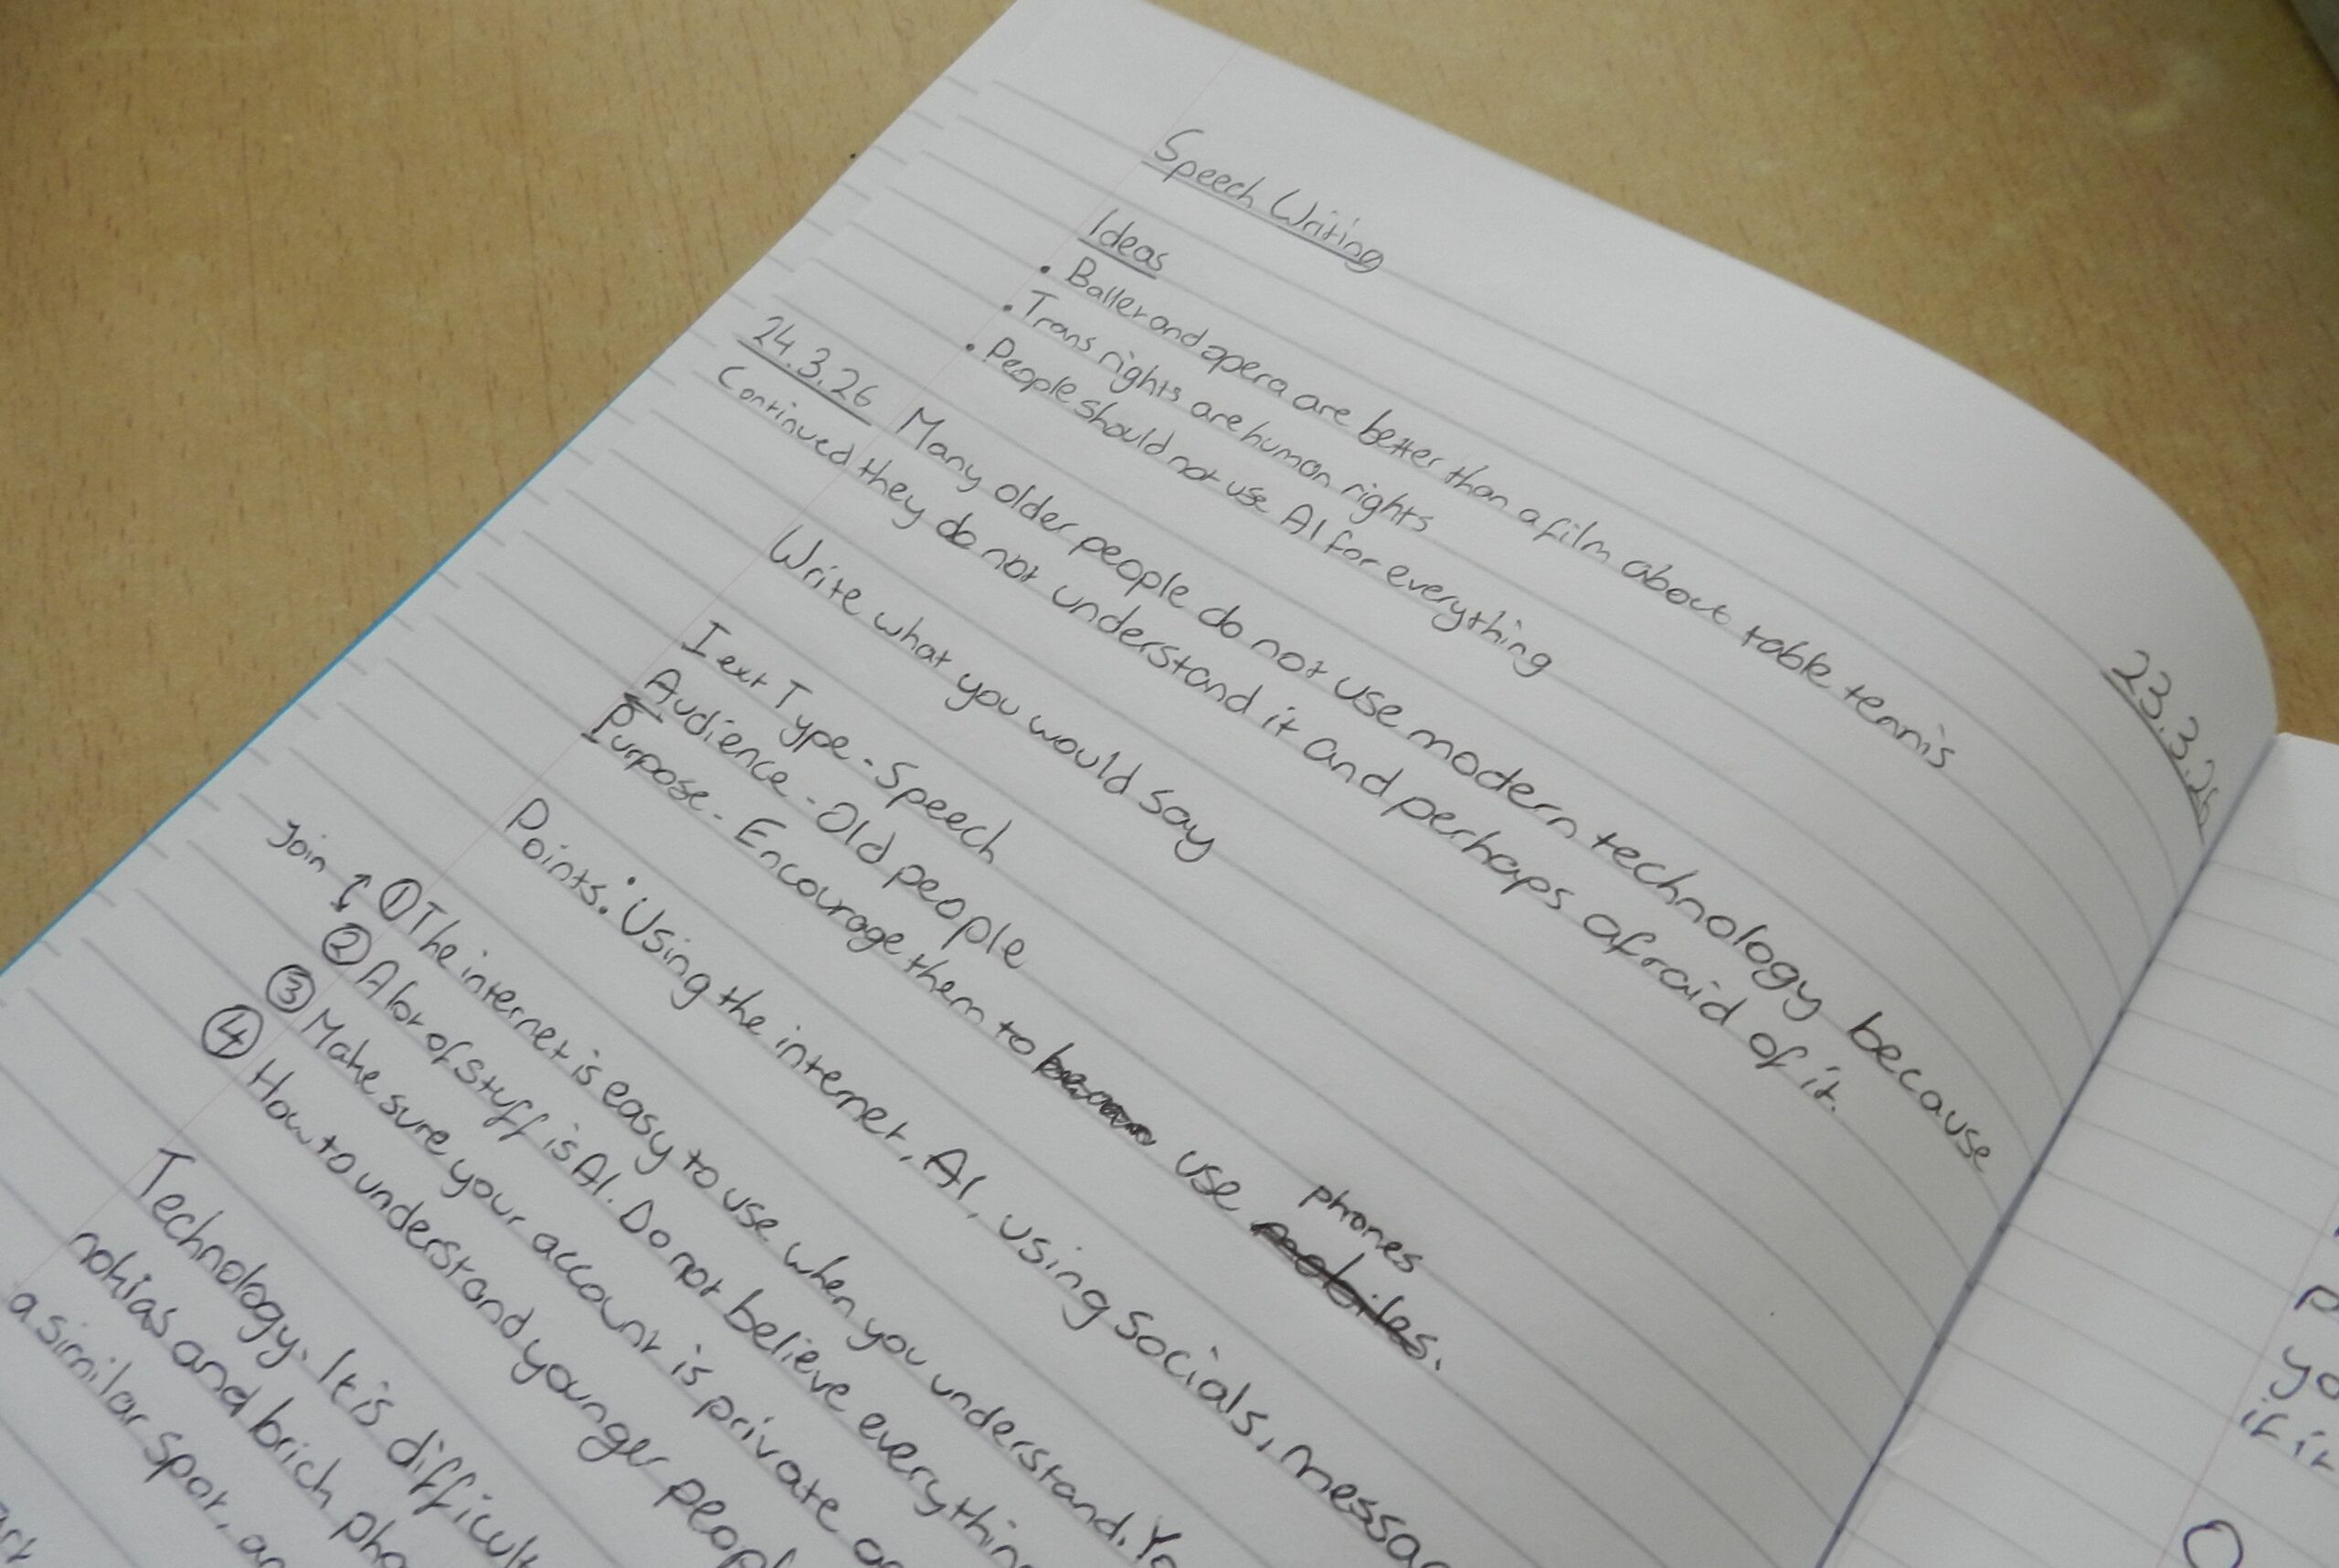 Speech Writing
23.3.26
Ideas
• Ballet and opera are better than a film about table tennis
• Trans rights are human rights
• People should not use AI for everything
24.3.26
Many older people do not use modern technology because
Continued they do not understand it and perhaps afraid of it.
Write what you would say
Text Type - Speech
Audience - Old people
Purpose - Encourage them to use mobiles. phones
Points: • Using the internet, AI, using socials, messa
Join
① The internet is easy to use when you understand. Yo
② A lot of stuff is AI. Do not believe everythin
③ Make sure your account is private a
④ How to understand younger peopl
Technology. It is difficult
nokias and brick pho
a similar spot, an
yo
if it